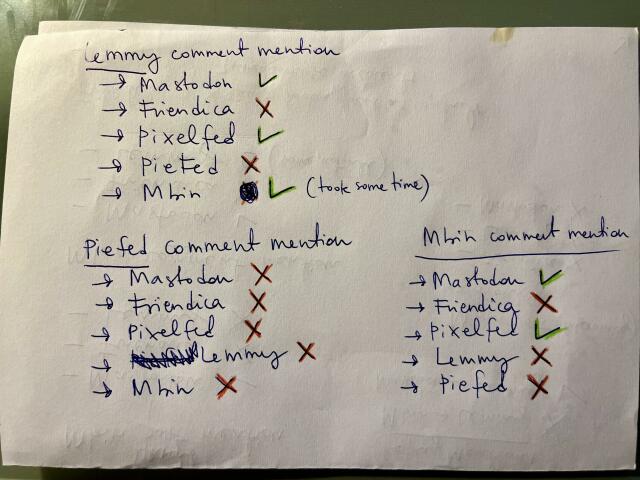 Lemmy comment mention
→ Mastodon ✓
→ Friendica ✗
→ Pixelfed ✓
→ Piefed ✗
→ Mbin ✓ (took some time)
Piefed comment mention
→ Mastodon ✗
→ Friendica ✗
→ Pixelfed ✗
→ Lemmy ✗
→ Mbin ✗
Mbin comment mention
→ Mastodon ✓
→ Friendica ✗
→ Pixelfed ✓
→ Lemmy ✗
→ Piefed ✗